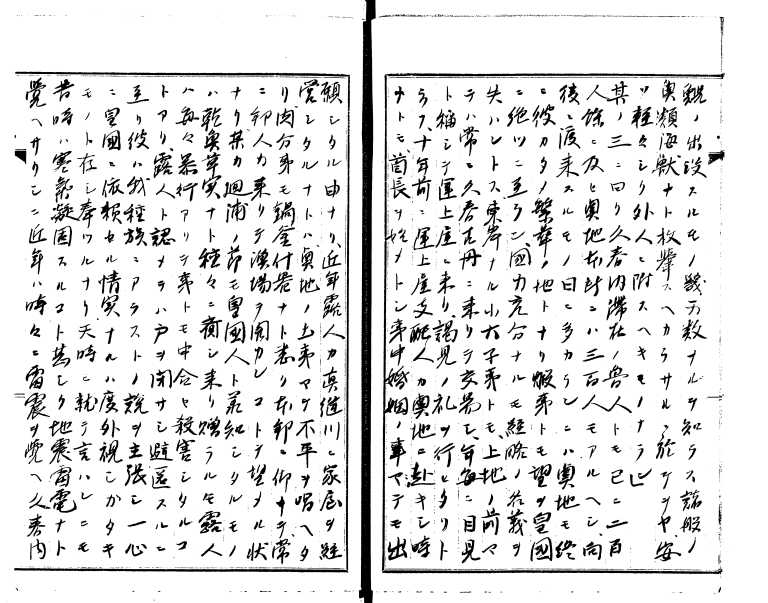 覩ノ出没スルモノ幾万数ナルヲ知ラス諸般ノ
魚類海獣ナト枚挙スヘカラサルニ於テヲヤ安
ツ軽々シク外人ニ附スヘキモノナラン
其ノ三ニ曰ク久春内滞在ノ魯人トモ已ニ二百
人餘ニ及ヒ奥地布計ニハ三百人モアルヘシ向
後ニ渡来スルモノ日ニ多カラシニハ奥地モ終
ニ彼カタノ繁華ノ地トナリ蝦夷トモ望ヲ皇国
ニ絶ツニ至ラン国力充分ナルモ経略ノ名義ヲ
失ハントス東岸ナル小大子夷トモ上地ノ前マ
テハ常ニ久春古丹ニ来リテ交易シ年毎ニ目見
ト稱シテ運上屋ニ来リ謁見ノ礼ヲ行ヒタリト
ラス十年前ニ運上屋支配人カ奥地ニ赴キシ時
ナトモ酋長ヲ始メトシ事中婚姻ノ事マテモ出
願シタル由ナリ近年露人カ真縫川ニ家居ヲ経
営シタルナトハ奥地ノ土夷マテ不平ヲ唱ヘタ
リ内分弟モ鍋釜什器ナト悉ク本邦ニ仰ナテ常
ニ邦人カ来リテ漁場ヲ開カレコトヲ望メル状
ナリ某カ廻浦ノ節モ皇国人ト承知シタルモノ
ハ乾魚草実ナト種々ニ齎シ来リ贈ラルモ露人
ハ毎々暴行アリテ事トモ申合セ殺害シタルコ
トアリ露人ト認メテハ戸ヲ閉ナシ避匿スルニ
至リ彼ハ我種族ニアラストノ説ヲ主張シ一心
ニ皇国ニ依頼セル情実ナルハ度外視シカタキ
モノト在シ奉ツルナリ天時ニ就テ言ハレニモ
昔時ハ寒氣凝固スルコト甚シク地震雷電ナト
覺ヘサリシニ近年ハ時々ニ雷震ヲ覺ヘ久春内